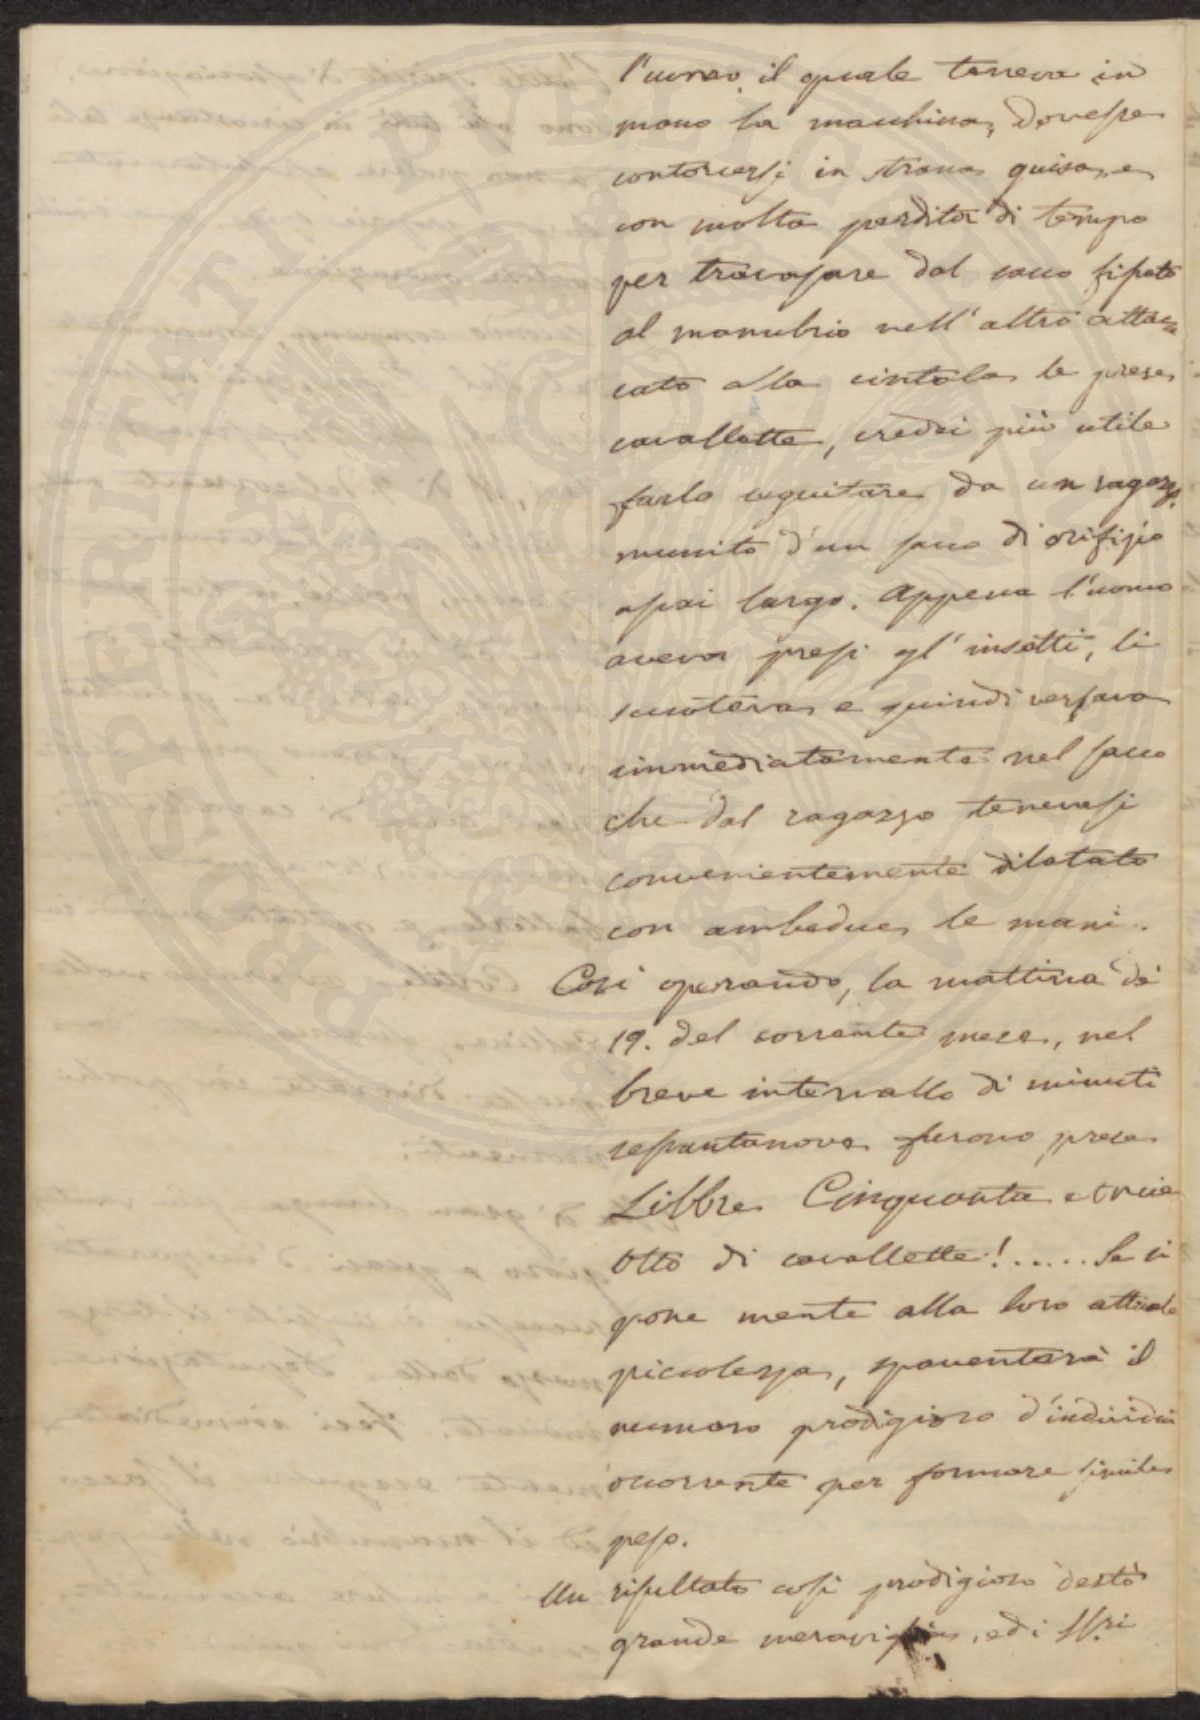 l'uomo, il quale teneva in
mano la macchina, dovesse
contorcersi in strana guisa, e
con molta perdita di tempo
per travasare dal sacco fissato
al manubrio nell'altro attac=
cato alla cintola le prese
cavallette, credei più utile
farlo seguitare da un ragazzo
munito d'un sacco di orifizio
assai largo. Appena l'uomo
aveva presi gl'insetti, li
scuoteva e quindi versava
immediatamente nel sacco
che dal ragazzo tenevasi
convenientemente dilatato
con ambedue le mani.
Così operando, la mattina de'
19. del corrente mese, nel
breve intervallo di minuti
sessantanove furono prese
Libbre Cinquanta e oncie
Otto di cavallette!..... Se si
pone mente alla loro attuale
piccolezza, spaventerà il
numero prodigioso d'individui
occorrente per formare simile
peso.
Un risultato così prodigioso destò
grande meraviglia, ed i SS.ri
PROSPERITATI PUBLICAE